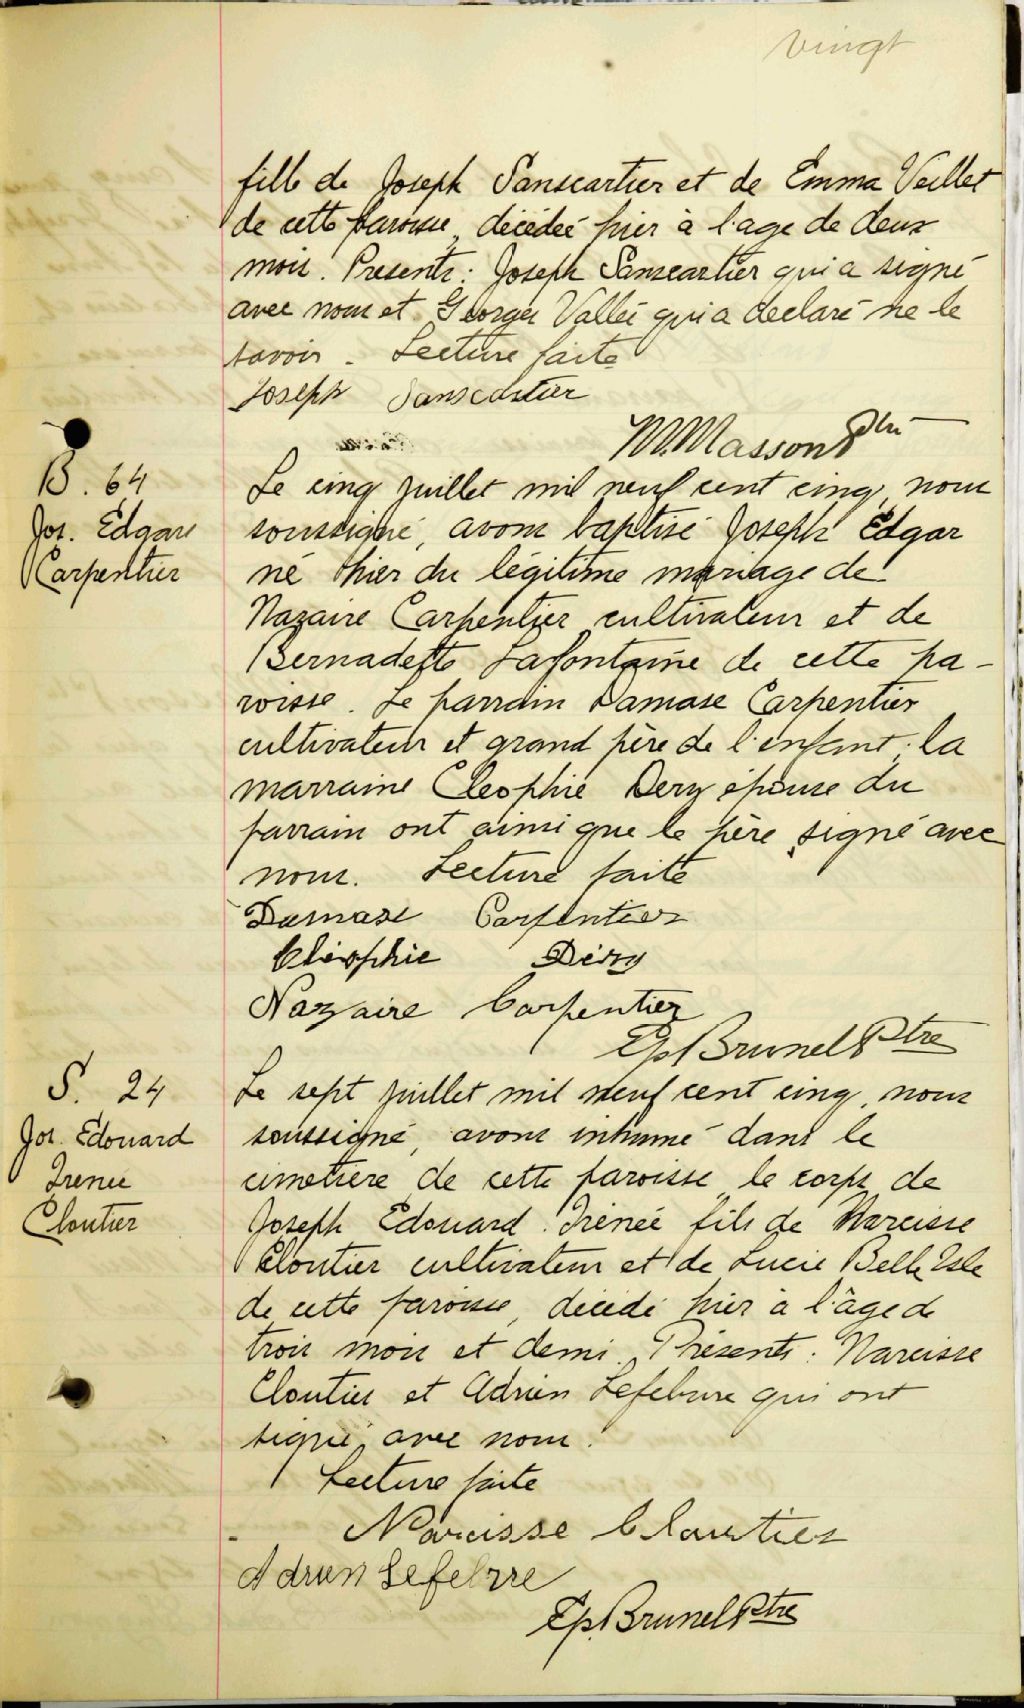 vingt
fille de Joseph Sanscartier et de Emma Veillet
de cette paroisse, décédée hier à l'age de deux
mois. Presents: Joseph Sanscartier qui a signé
avec nous et Georges Vallée qui a declaré ne le
savoir. Lecture faite
Joseph Sanscartier
M. Masson Ptre
B. 64
Jos. Edgar
Carpentier
Le cinq juillet mil neuf cent cinq, nous
soussigné, avons baptisé Joseph Edgar
né hier du légitime mariage de
Nazaire Carpentier cultivateur et de
Bernadette Lafontaine de cette pa-
roisse. Le parrain Damase Carpentier
cultivateur et grand père de l'enfant; la
marraine Cleophie Dery épouse du
parrain ont ainsi que le père signé avec
nous. Lecture faite
Damase Carpentier
Cléophie Déry
Nazaire Carpentier
Ep. Brunel Ptre
S. 24
Jos. Edouard
Irenée
Cloutier
Le sept juillet mil neuf cent cinq, nous
soussigné, avons inhumé dans le
cimetière de cette paroisse, le corps de
Joseph Edouard Irénée fils de Narcisse
Cloutier cultivateur et de Lucie Belle Isle
de cette paroisse, décédé hier à l'âge de
trois mois et demi. Présents: Narcisse
Cloutier et Adrien Lefebvre qui ont
signé avec nous.
Lecture faite
Narcisse Cloutier
Adrien Lefebvre
Ep. Brunel Ptre